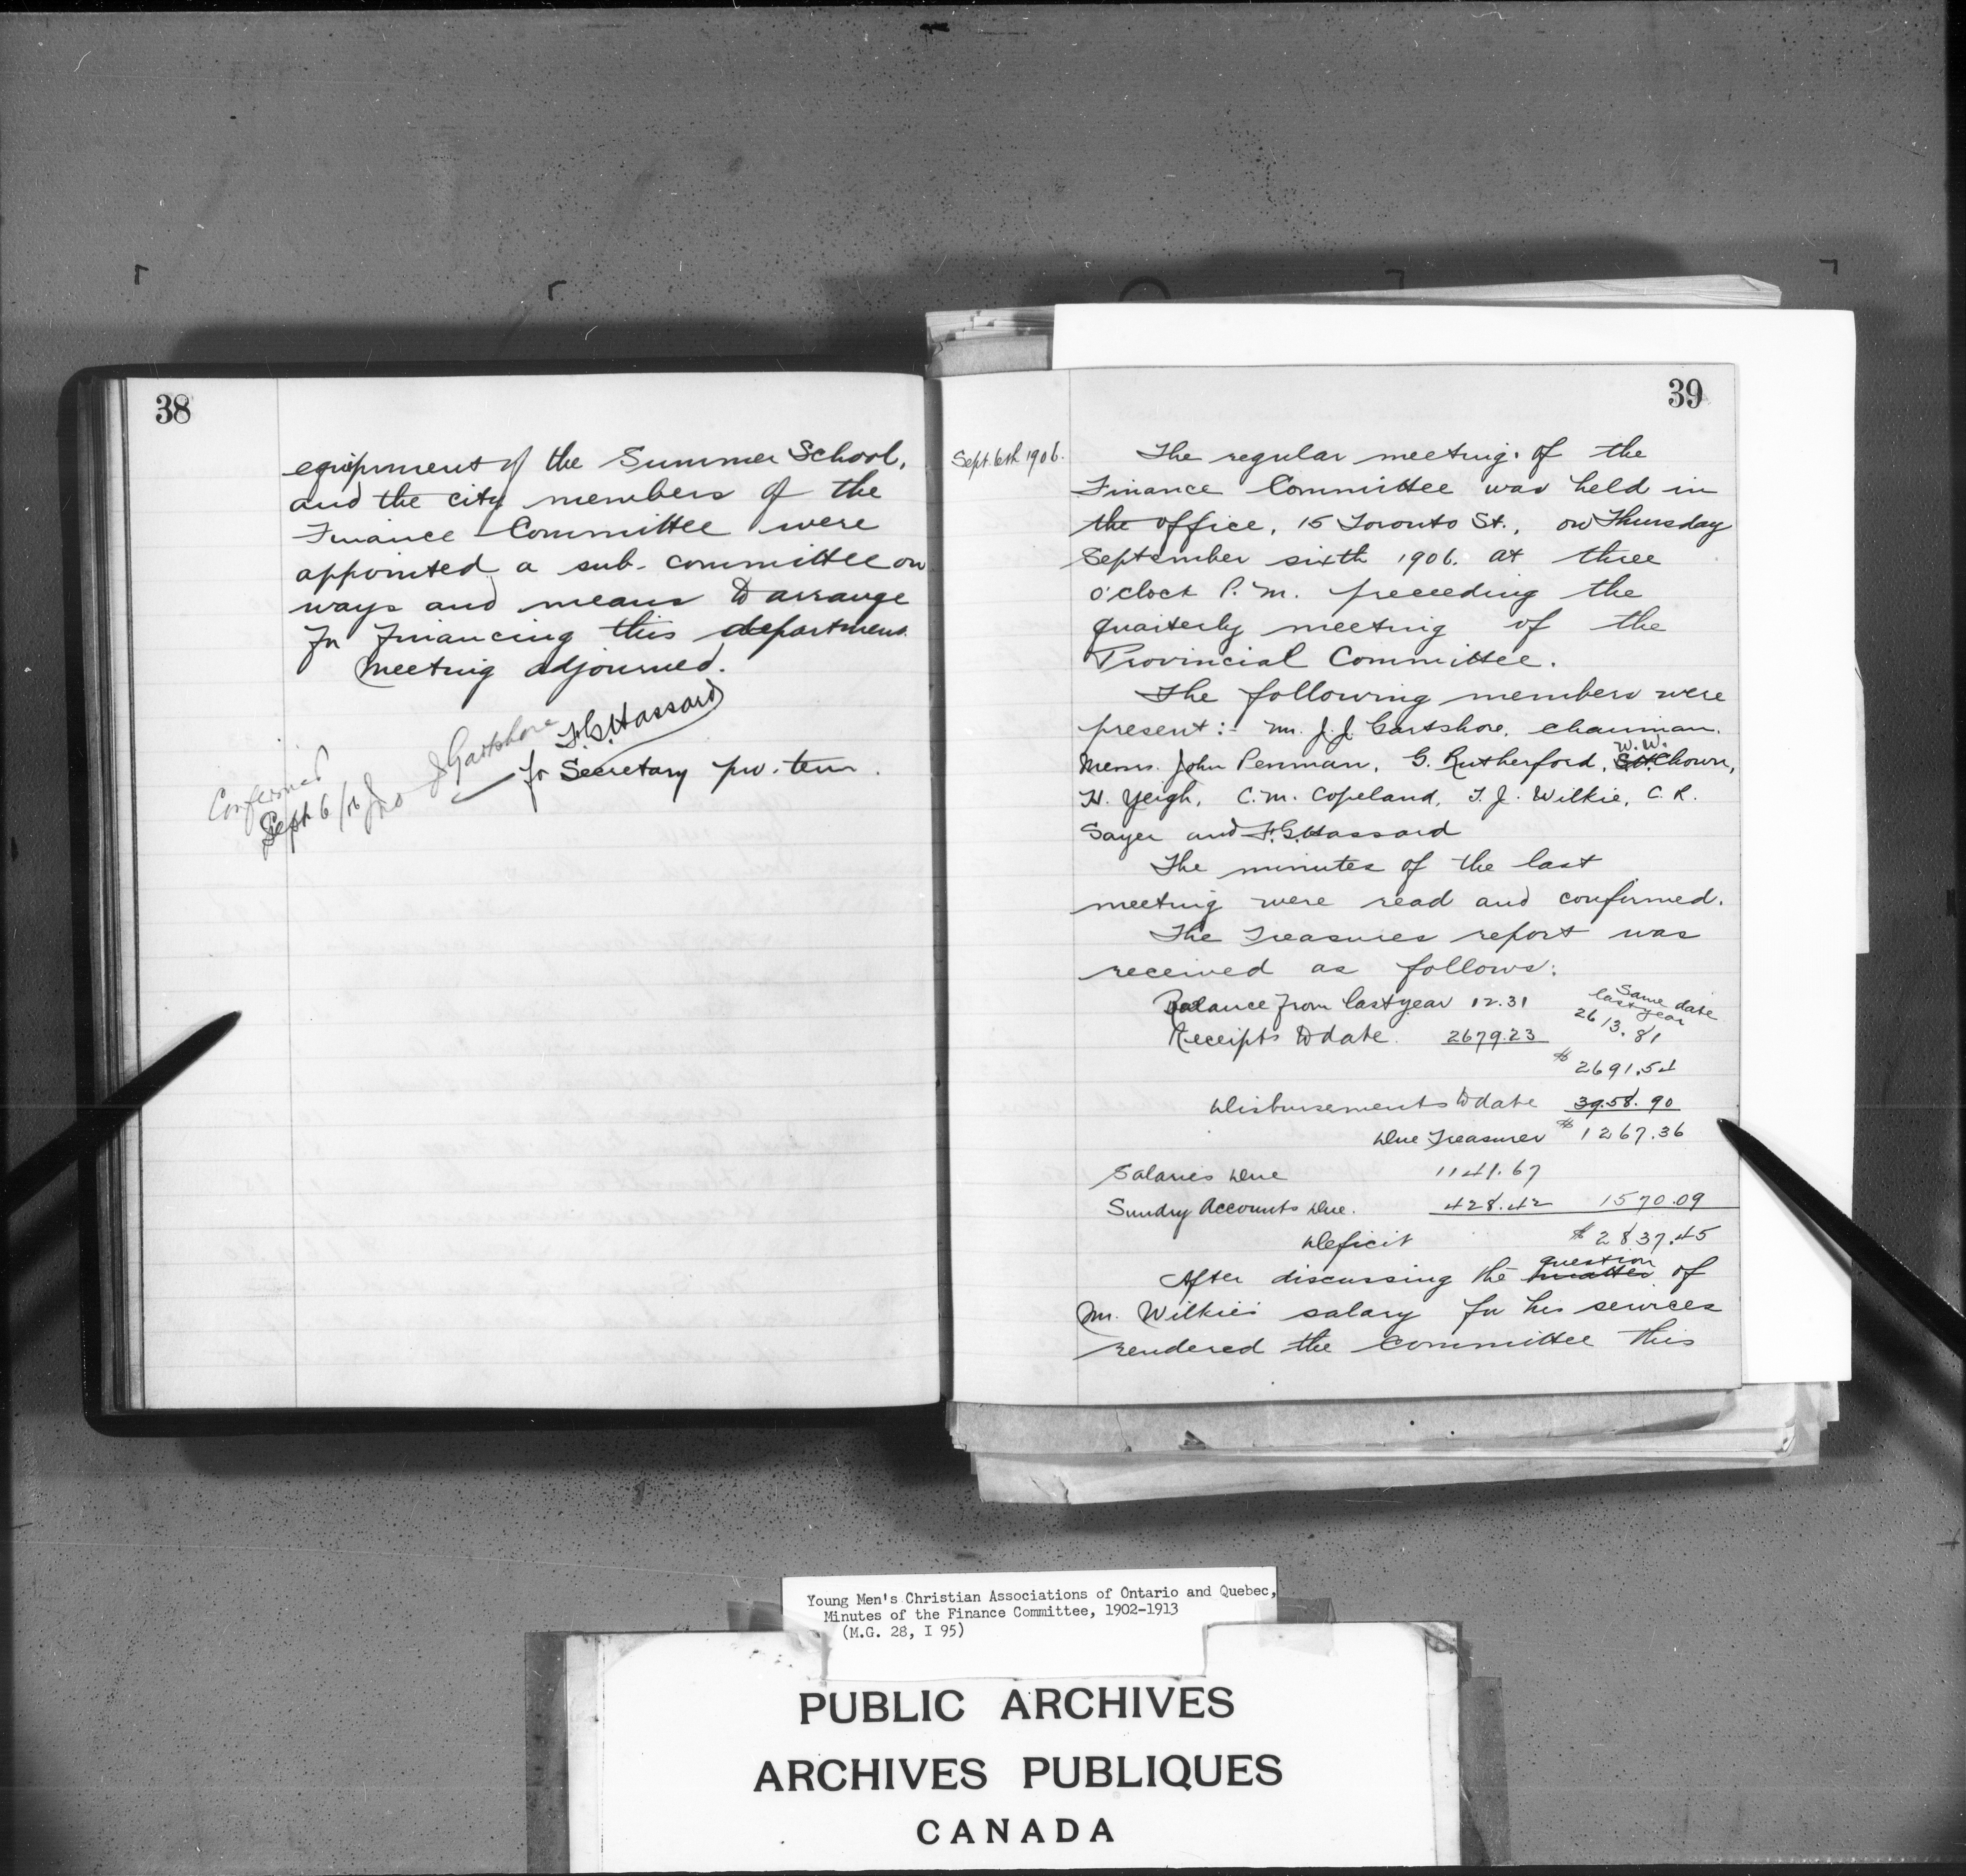 38
equipment of the Summer School,
and the city members of the
Finance Committee were
appointed a sub-committee on
ways and means to arrange
for financing this department.
Meeting adjourned.
F.G. Hassard
for Secretary pro. tem.
Confirmed
Sept 6/06 Jno J Gartshore
39
Sept. 6th 1906.
The regular meeting of the
Finance Committee was held in
the office, 15 Toronto St., on Thursday
September sixth 1906. at three
o'clock P.M. preceeding the
quarterly meeting of the
Provincial Committee.
The following members were
present:- Mr. J.J. Gartshore, chairman.
W.W.
Messrs. John Penman, G. Rutherford, Chown,
H. Yeigh, C.M. Copeland, T.J. Wilkie, C.R.
Sayer and F.G. Hassard
The minutes of the last
meeting were read and confirmed.
The Treasures report was
received as follows:
Same date
last year
Balance from last year 12.31
2613.81
Receipts to date. 2679.23
$ 2691.54
Disbursements to date 3958.90
Due Treasurer $ 1267.36
Salaries Due 1141.67
Sundry Accounts Due. 428.42 1570.09
Deficit $ 2837.45
question
After discussing the matter of
Mr. Wilkie's salary for his services
rendered the committee this
Young Men's Christian Associations of Ontario and Quebec,
Minutes of the Finance Committee, 1902-1913
(M.G. 28, I 95)
PUBLIC ARCHIVES
ARCHIVES PUBLIQUES
CANADA